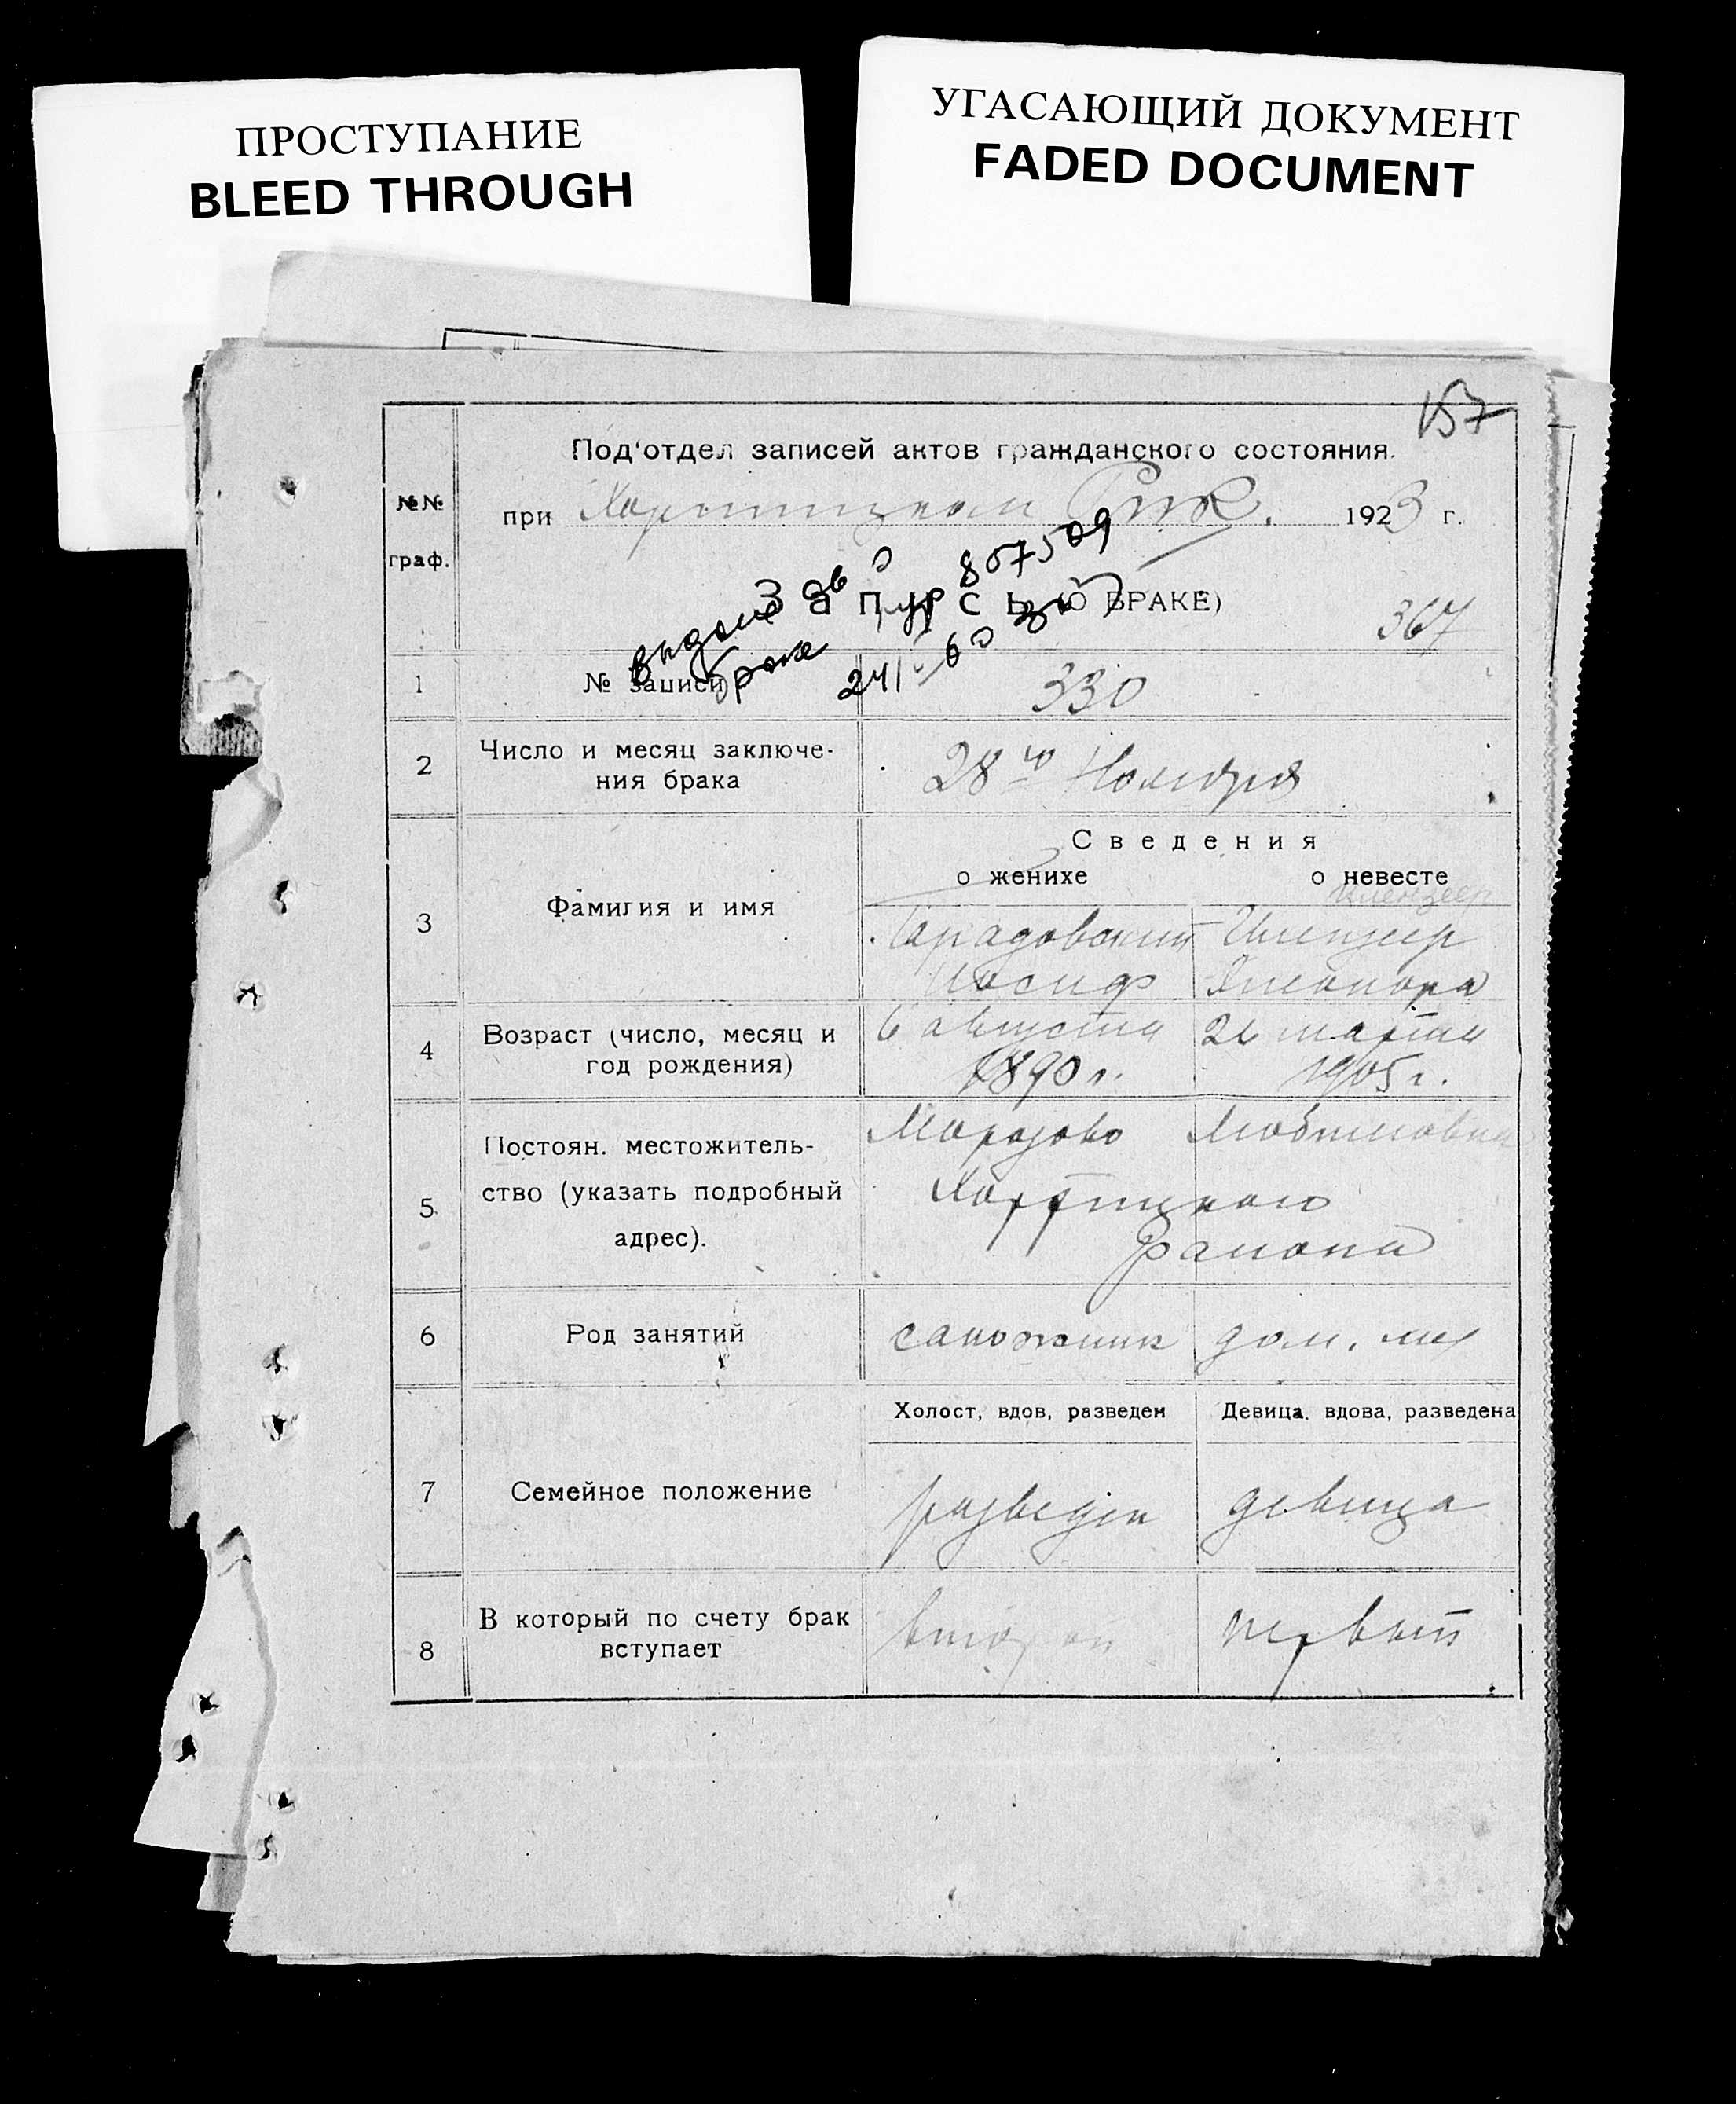 ПРОСТУПАНИЕ
BLEED THROUGH
УГАСАЮЩИЙ ДОКУМЕНТ
FADED DOCUMENT
157
Под'отдел записей актов гражданского состояния.
№№
граф.
при Хортицком РИК. 1923 г.
807509
Запись (О БРАКЕ)
367
брака
1 № записи 330
2 Число и месяц заключе-
ния брака
28го Ноября
Сведения
о женихе о невесте
3 Фамилия и имя
Иосиф
4 Возраст (число, месяц и
год рождения)
6 августа 26 марта
1890 г. 1905 г.
5 Постоян. местожитель-
ство (указать подробный
адрес).
Хортицкого
района
6 Род занятий сапожник дом.
Холост, вдов, разведен Девица, вдова, разведена
7 Семейное положение разведен девица
8 В который по счету брак
вступает
второй первый